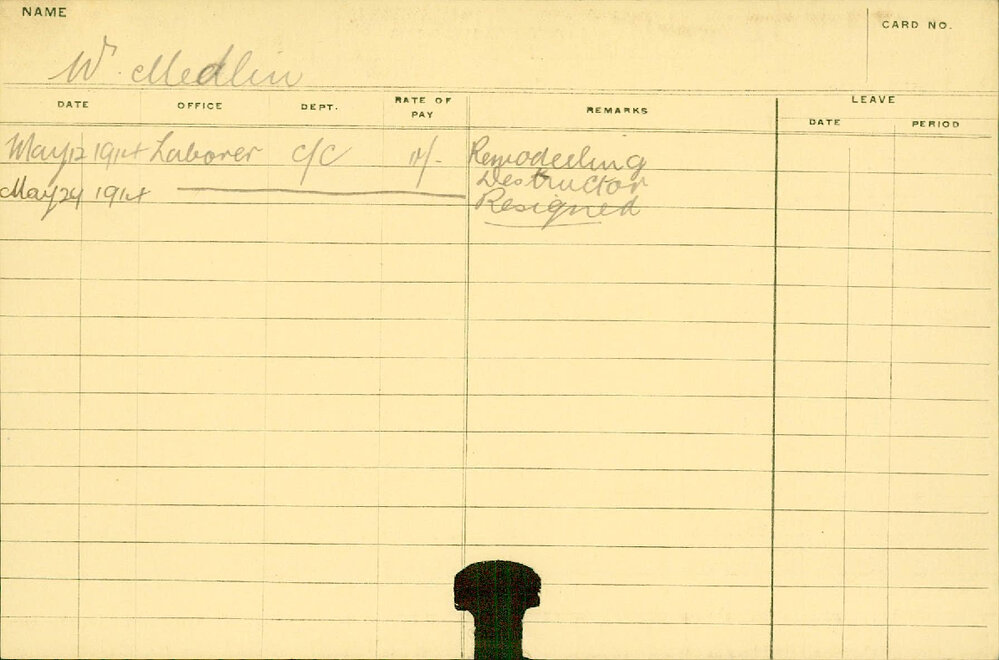 NAME
CARD NO.
W. Medlin
DATE OFFICE DEPT. RATE OF PAY REMARKS LEAVE
DATE PERIOD
May 12 1914 Laborer C/C Remodelling
Destructor
May 24 1914 Resigned